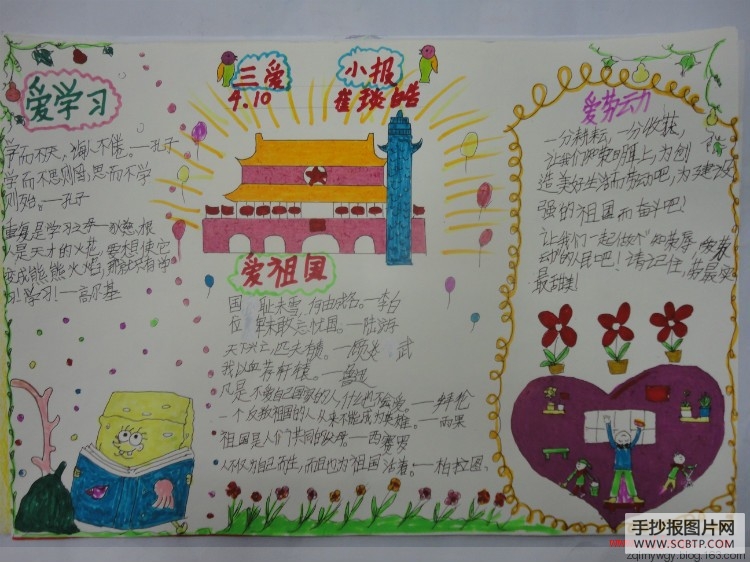 三爱
小报
4.10
崔琰皓
爱学习
学而不厌，诲人不倦。—孔子
学而不思则罔，思而不学
则殆。—孔子
是学习之母
是天才的火花，要想使它
变成熊熊火焰，那就只有学
习！学习！—高尔基
爱祖国
国耻未雪，何由成名。—李白
位卑未敢忘忧国。—陆游
天下兴亡，匹夫有责。—顾炎武
我以血荐轩辕。—鲁迅
凡是不爱自己国家的人什么也不会爱。—拜伦
一个反叛祖国的人从来不能成为英雄。—雨果
祖国是人们共同的父母—西赛罗
人不仅为自己而生，而且也为祖国活着。—柏拉图
爱劳动力
一分耕耘，一分收获，
让我们
造美好生活而劳动吧，为建设
强的祖国而奋斗吧！
让我们一起做
动的人民吧！请记住，劳
最甜美！
手抄报图片网
WWW.SCBTP.COM
zqlmywgy.blog.163.com